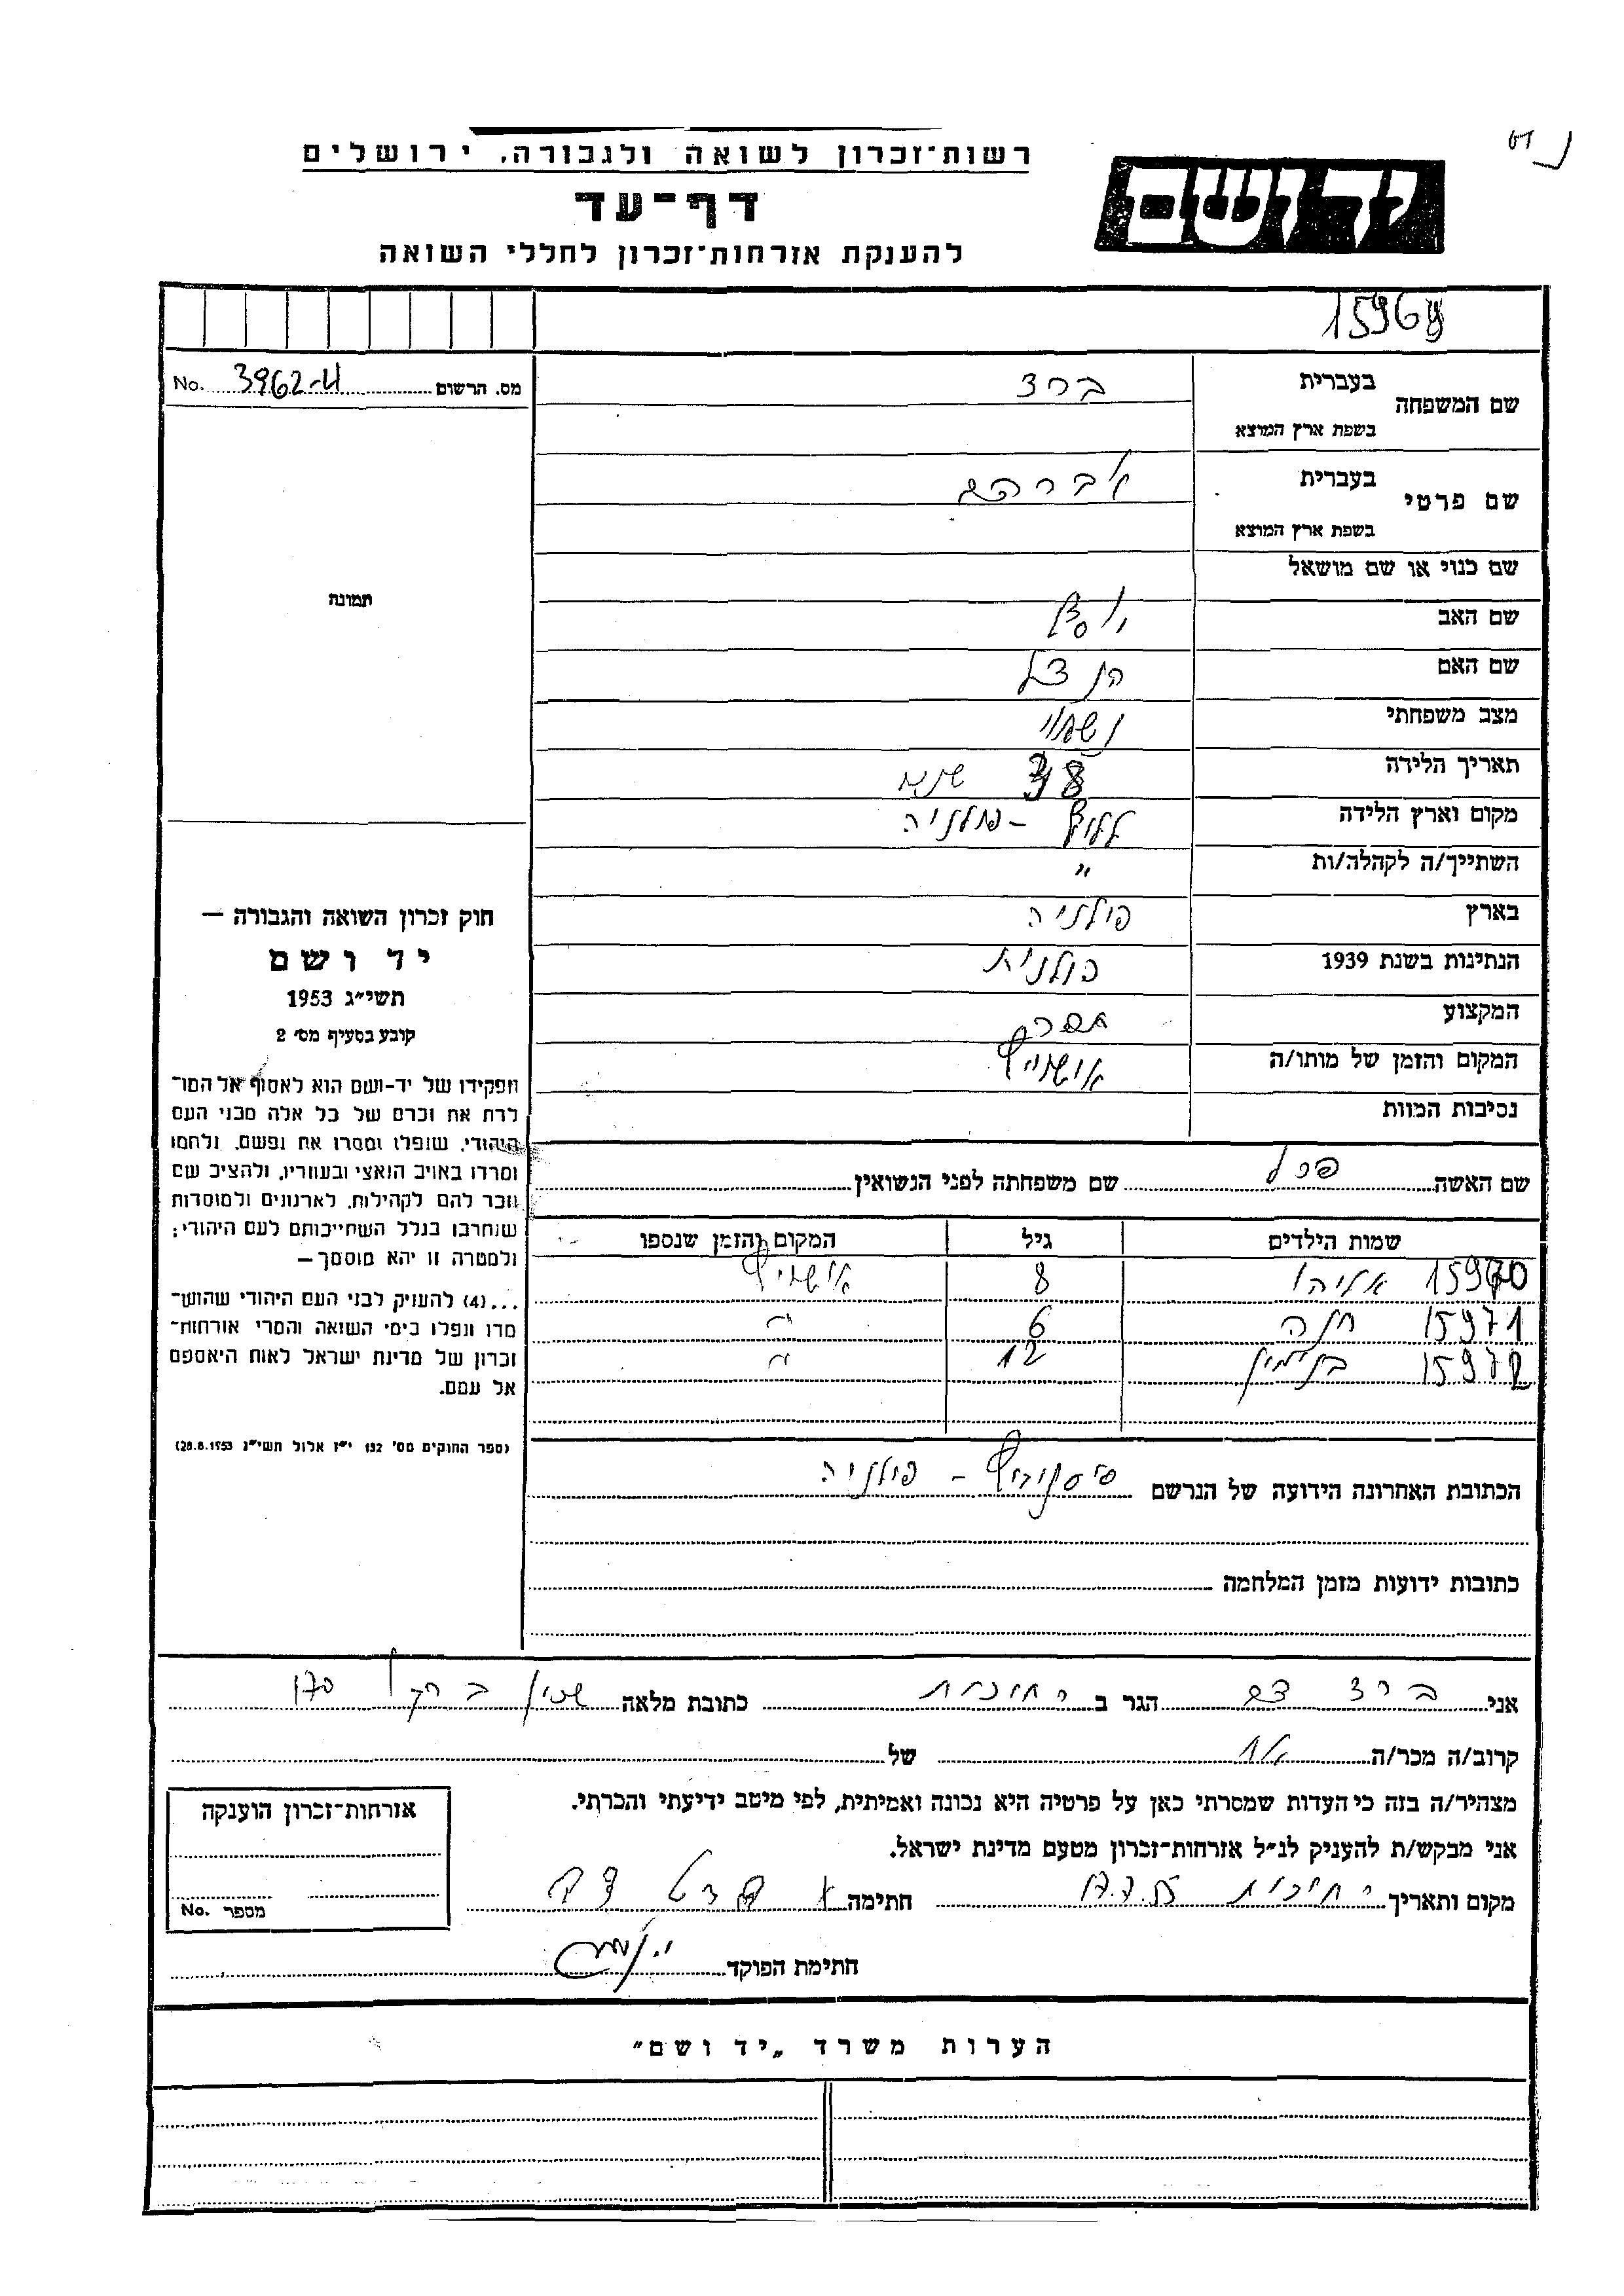 רשות־זכרון לשואה ולגבורה, ירושלים
יד ושם
דף־עד
להענקת אזרחות־זכרון לחללי השואה
מס. הרשום No.
שם המשפחה בעברית ברצ
בשפת ארץ המוצא
שם פרטי בעברית אברהם
בשפת ארץ המוצא
שם כנוי או שם מושאל
תמונה
שם האב יוסף
שם האם הנצל
מצב משפחתי נשוי
תאריך הלידה 38 שנים
מקום וארץ הלידה פולניה
השתייך/ה לקהלה/ות "
בארץ פולניה
הנתינות בשנת 1939 פולנית
המקצוע
המקום והזמן של מותו/ה אושויץ
נסיבות המוות
חוק זכרון השואה והגבורה —
יד ושם
תשי״ג 1953
קובע בסעיף מס׳ 2
תפקידו של יד-ושם הוא לאסוף אל המו־
לדת את זכרם של כל אלה מבני העם
היהודי, שנפלו ומסרו את נפשם, נלחמו
ומרדו באויב הנאצי ובעוזריו, ולהציב שם
וזכר להם לקהילות, לארגונים ולמוסדות
שנחרבו בגלל השתייכותם לעם היהודי;
ולמטרה זו יהא מוסמך —
...(4) להעניק לבני העם היהודי שהוש־
מדו ונפלו בימי השואה והמרי אזרחות־
זכרון של מדינת ישראל לאות היאספם
אל עמם.
(ספר החוקים מס׳ 132 י״ז אלול תשי״ג 28.8.1953)
שם האשה שם משפחתה לפני הנשואין
שמות הילדים גיל המקום והזמן שנספו
15970 אליהו 8 אושויץ
15971 חנה 6 "
15972 בנימין 12 "
הכתובת האחרונה הידועה של הנרשם פולניה
כתובות ידועות מזמן המלחמה
אני ברצ הגר ב רחובות כתובת מלאה שכון
קרוב/ה מכר/ה אח של
מצהיר/ה בזה כי העדות שמסרתי כאן על פרטיה היא נכונה ואמיתית, לפי מיטב ידיעתי והכרתי.
אני מבקש/ת להעניק לנ״ל אזרחות־זכרון מטעם מדינת ישראל.
מקום ותאריך רחובות חתימה
חתימת הפוקד
אזרחות־זכרון הוענקה
מספר No.
הערות משרד „יד ושם"